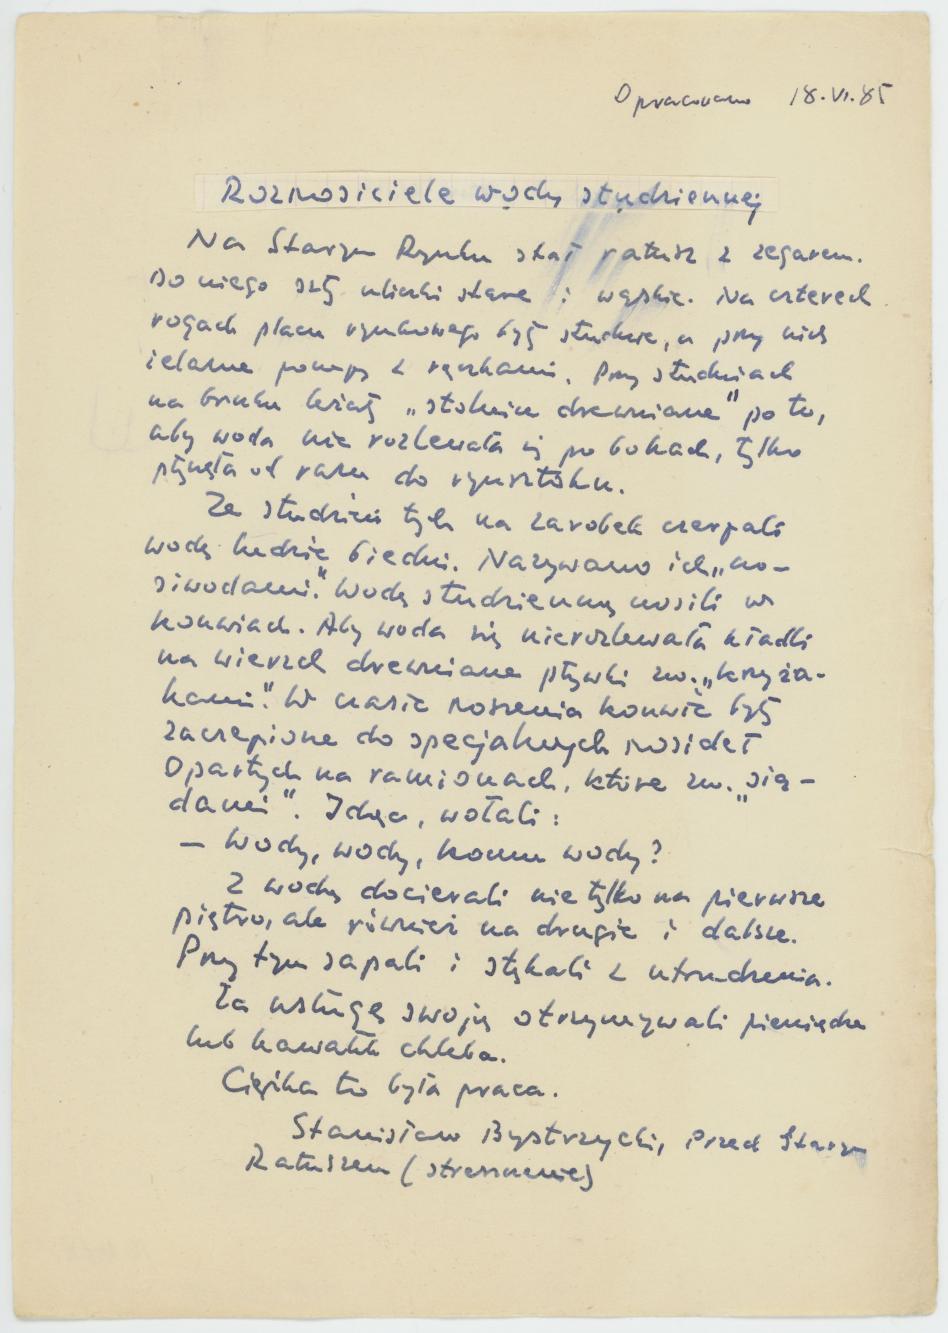 Opracowano 18.VI.85
Roznosiciele wody studziennej
Na Starym Rynku stał ratusz z zegarem.
Do niego szły uliczki stare i wąskie. Na czterech
rogach placu rynkowego były studnie, a przy nich
żelazne pompy z rączkami. Przy studniach
na bruku leżały „stolnice drewniane" po to,
aby woda nie rozlewała się po bokach, tylko
płynęła od razu do rynsztoku.
Ze studzien tych na zarobek czerpali
wodę ludzie biedni. Nazywano ich „no-
siwodami". Wodę studzienną nosili w
konwiach. Aby woda się nierozlewała kładli
na wierzch drewniane pływki zw. „krzyża-
kami". W czasie noszenia konwie były
zaczepione do specjalnych nosideł
opartych na ramionach, które zw. „sią-
dami". Idąc, wołali:
– Wody, wody, komu wody?
Z wodą docierali nie tylko na pierwsze
piętro, ale również na drugie i dalsze.
Przy tym sapali i stękali z utrudzenia.
Za usługę swoją otrzymywali pieniądze
lub kawałek chleba.
Ciężka to była praca.
Stanisław Bystrzycki, Przed Starym
Ratuszem (streszczenie)